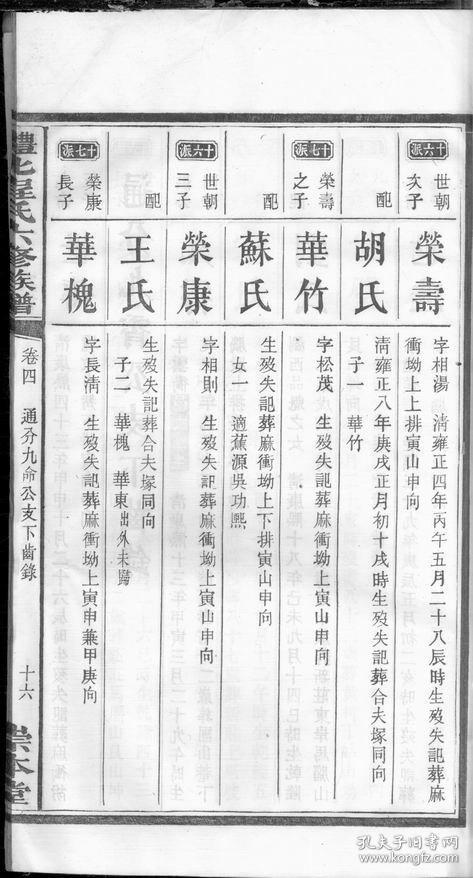 十六派
世朝
次子
榮壽
字相湯 清雍正四年丙午五月二十八辰時生歿失記葬麻
衝坳上上排寅山申向
配
胡氏
清雍正八年庚戌正月初十戌時生歿失記葬合夫塚同向
子一 華竹
十七派
榮壽
之子
華竹
字松茂 生歿失記葬麻衝坳上寅山申向
配
蘇氏
生歿失記葬麻衝坳上下排寅山申向
女一 適蕉源吳功熙
十六派
世朝
三子
榮康
字相則 生歿失記葬麻衝坳上寅山申向
配
王氏
生歿失記葬合夫塚同向
子二 華槐 華東出外未歸
十七派
榮康
長子
華槐
字長清 生歿失記葬麻衝坳上寅申兼甲庚向
醴北程氏六修族譜
卷四 通分九命公支下齒錄
十六
崇本堂
孔夫子旧書网